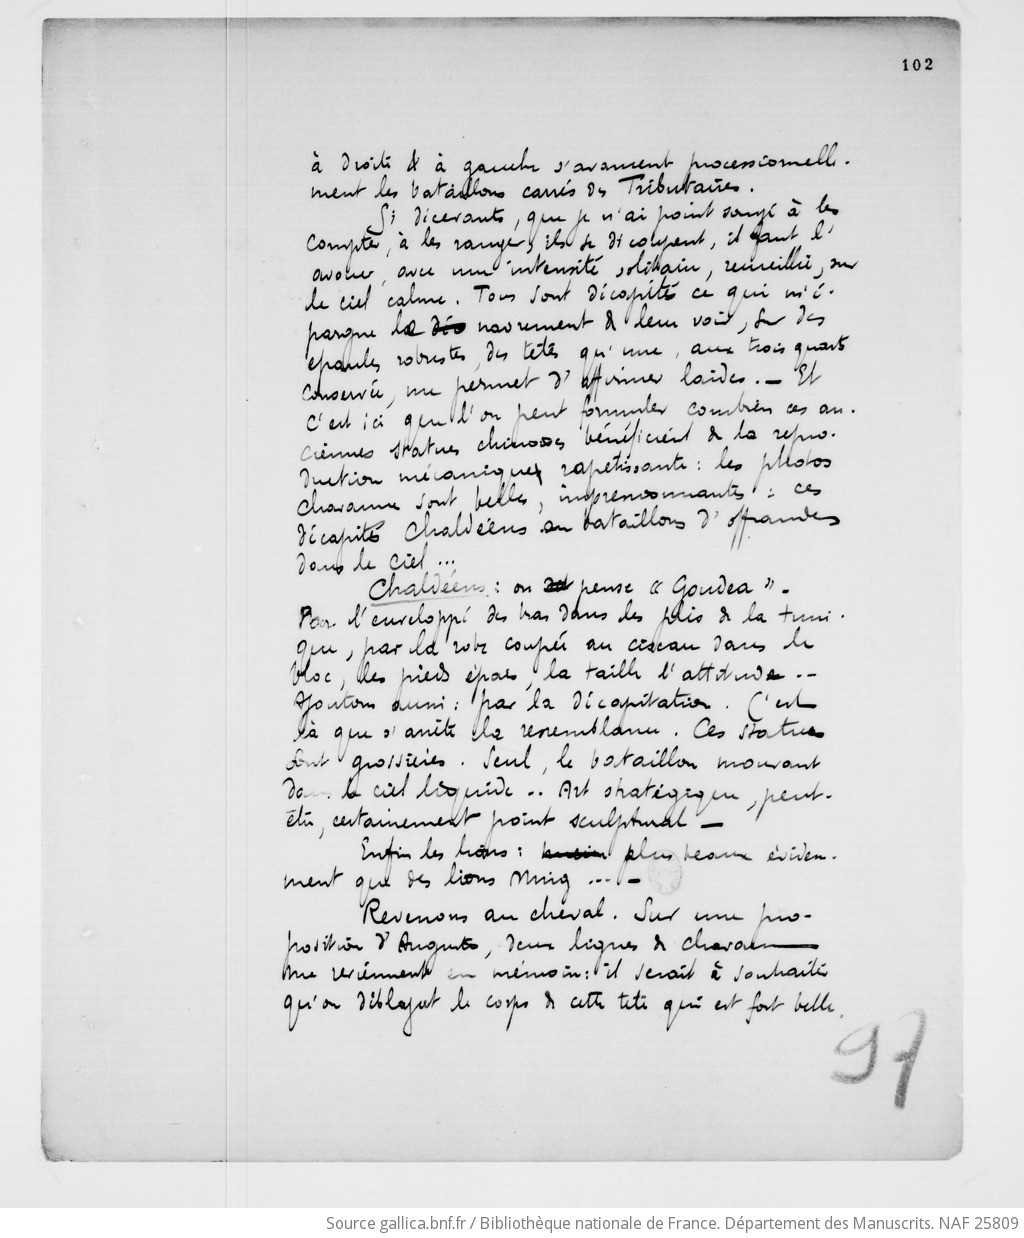 102
à droite & à gauche s'avancent processionnelle-
ment les bataillons carrés des Tributaires.
Si décevants, que je n'ai point songé à les
compter, à les ranger, ils se découpent, il faut l'
avouer, avec une intensité solitaire, recueillie, sur
le ciel calme. Tous sont décapités ce qui m'é-
pargne le navrement de leur voir, sur des
épaules robustes, des têtes qu'une, aux trois quarts
conservée, me permet d'affirmer laides. — Et
c'est ici que l'on peut formuler combien ces an-
ciennes statues chinoises bénéficient de la repro-
duction mécanique, rapetissante : les photos
Chavannes sont belles, impressionnantes : ces
décapités Chaldéens en bataillons d'offrandes
dans le ciel ...
Chaldéens : on pense « Goudea ». -
Par l'enveloppé des bras dans les plis de la tuni-
que, par la robe coupée au ciseau dans le
bloc, les pieds épais, la taille l'attitude ...
Ajoutons aussi : par la décapitation. C'est
là que s'arrête la ressemblance. Ces statues
sont grossières. Seul, le bataillon mouvant
dans le ciel liquide ... Art stratégique, peut-
être, certainement point sculptural —
Enfin les lions : plus beaux évidem-
ment que des lions Ming ... —
Revenons au cheval. Sur une pro-
position d'Auguste, deux lignes de Chavannes
me reviennent en mémoire : il serait à souhaiter
qu'on déblayât le corps de cette tête qui est fort belle.
97
Source gallica.bnf.fr / Bibliothèque nationale de France. Département des Manuscrits. NAF 25809